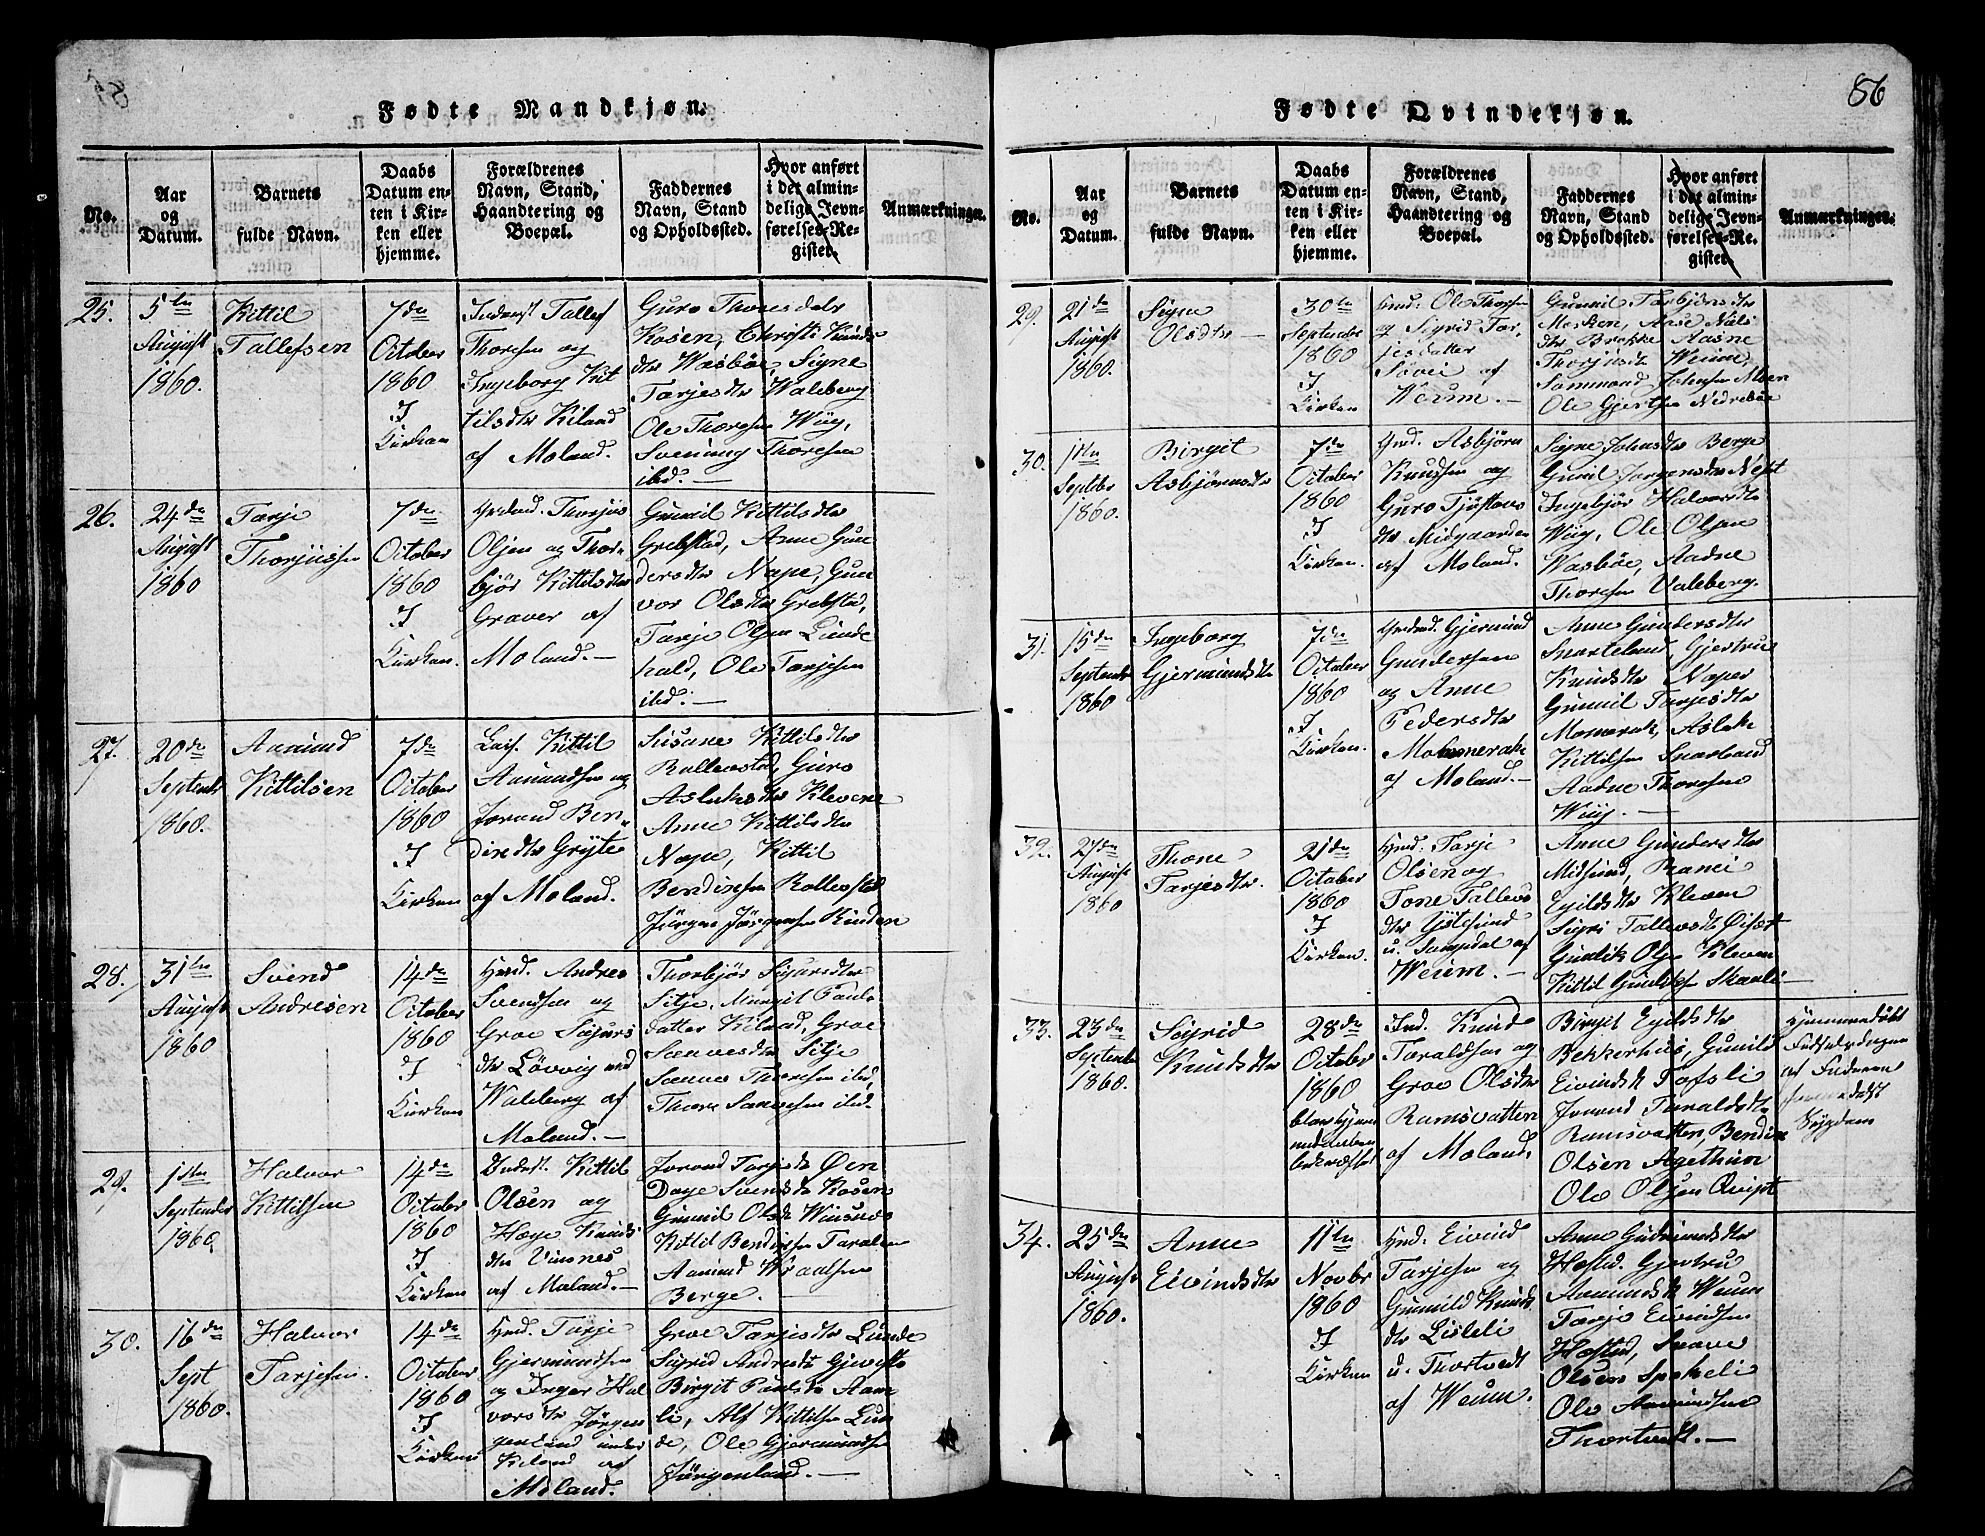 Fødte Mandkjøn.
No.
Aar
og
Datum.
Barnets
fulde Navn.
Daabs
Datum en-
ten i Kir-
ken eller
hjemme.
Forældrenes
Navn, Stand,
Haandtering og
Boepæl.
Faddernes
Navn, Stand
og Opholdssted.
Hvor anført
i det almin-
delige Jevn-
førelses-Re-
gister.
Anmærkninger.
25.
5te
August
1860.
Kittil
Tallefsen
7de
October
1860
I
Kirken
Tallef
Thoresen og
Ingeborg Kit
tilsdtr Kiland
af Moland.
Guro Thoresdatr
Rosen, Christi Knuds
dtr Wasbøe, Signe
Tarjesdtr Waleberg
Ole Thoresen Wiig,
Svenung Thoresen
ibd. —
26.
24de
August
1860
Tarje
Thorjussen
7de
October
1860
I
Kirken.
Grdmd. Thorjus
Olsen og Thor-
bjør Kittilsdtr
Graver af
Moland. —
Gunnil Kittilsdtr
Grebstad, Anne Gun
dersdtr Nape, Gun
vor Olsdtr Grebstad,
Tarje Olsen Lunde
kald, Ole Tarjesen
ibd. —
27.
20de
Septembr
1860.
Aamund
Kittilsen
7de
October
1860
I
Kirken
Leif. Kittil
Aamundsen og
Jorand Ben-
dixdtr Gryte
af Moland.
Susane Kittilsdtr
Rollevstad, Guro
Aslaksdtr Klevene
Anne Kittilsdtr
Nape, Kittil
Bendixsen Rollevstad
Jørgen Jørgensen Kinden
28.
31te
August
1860
Svend
Andresen
14de
October
1860
I
Kirken
Hmd. Andres
Svendsen og
Groe Sigurs
dtr Løvvig ved
Waleberg af
Moland. —
Thorbjør Sigursdtr
Sitje, Margit Pauls
datter Kiland, Groe
Sanvesdtr Sitje
Sanvve Thoresen ibd,
Thore Sanvesen ibd.
29.
1ste
September
1860
Halvor
Kittilsen
14de
October
1860
I
Kirken
Kittil
Olsen og
Høye Knuds
dtr Vinsnes
af Moland. —
Jorand Tarjesdtr Øen
Daye Svendsdtr Rosen
Gunnil Olsdtr Winsnes
Kittil Bendixsen Taralen
Aamund Wraalsen
Berge. —
30.
16de
Sept
1860.
Halvor
Tarjesen.
14de
October
1860
I
Kirken
Hmd. Tarje
Gjermundsen
og Inger Hal
vorsdtr Jørgen
genland under
Kiland af
Moland.
Groe Tarjesdtr Lunde
Sigrid Andresdtr
Birgit Paulsdtr Aam
li, Alf Kittilsen Lun
de, Ole Gjermundsen
Jørgenland. —
86
Fødte Qvindekjøn.
No.
Aar
og
Datum.
Barnets
fulde Navn.
Daabs
Datum en-
ten i Kir-
ken eller
hjemme.
Forældrenes
Navn, Stand,
Haandtering og
Boepæl.
Faddernes
Navn, Stand
og Opholdssted.
Hvor anført
i det almin-
delige Jevn-
førelses-Re-
gister.
Anmærkninger.
29.
21de
August
1860.
Signe
Olsdtr —
30te
September
1860
I
Kirken
Hmd. Ole Thorsen
og Sigrid Tar-
jesdatter
af
Weum. —
Gunnil Torbjønsdtr
Moshen, Aase Nils
dtr Brokke Aasne
Thorjusdtr Weum,
Sammond Johnsen Moen
Ole Gjertsen Nedrebøe
30.
11te
Septber
1860.
Birgit
Asbjørnsdtr
7de
October
1860
I
Kirken.
Grmd. Asbjørn
Knudsen og
Guro Tjøstovs
dtr Midgaarden
af Moland.
Signe Johnsdtr Berge
Gunil Jørgensdtr Nest
Ingebjør Halvorsdtr
Wiig, Ole Olsen
Wasbøe, Aadne
Thoresen Valeberg.
31.
15de
Septembr
1860
Ingeborg
Gjermundsdtr
7de
October
1860
I
Kirken.
Grdmd. Gjermund
Gundersen
og Anne
Pedersdtr
Momerak
af Moland. —
Anne Gundersdtr
Snarteland, Gjertrue
Knudsdtr Naper
Gunnil Tarjesdtr
Momrak, Aslak
Kittilsen Snarland
Aadne Thoresen
Wiig. —
32.
27de
August
1860
Thone
Tarjesdtr.
21de
October
1860
I
Kirken.
Hmd. Tarje
Olsen og
Tone Tallevs
dtr Ystesund
u. Langedal af
Weum. —
Anne Gundersdtr
Midsund, Ranei
Eyildsdtr Kleven
Sigri Tallevsdtr
Gunlik Olsen Kleven
Kittil Gunliksen Skarli
33.
23de
Septembr
1860.
Sigrid
Knudsdtr
28de
October
1860
blev hjem
Ind. Knud
Taraldsen og
Groe Olsdtr
Ramsvatten
af Moland,
Birgit Eyildsdtr
Bekkerhus, Gunild
Eivindsdtr Tofsli
Jorand Taraldsdtr
Ramsvatten, Bendix
Olsen Agethun
Ole Olsen Qvipt
Hjemmedøbt
Fødselsdagen
af Faderen
Sygdom
34.
25de
August
1860.
Anne
Eivindsdtr
11te
Novbr
1860
I
Kirken
Hmd. Eivind
Tarjesen og
Gunnild Knuds
dtr Lisleli
u. Thortvedt
af Weum.
Anne Gudmundsdtr
Hæstad, Gjertru
Aamundsdtr Weum
Tarje Eivindsen
Hæstad, Snave
Olsen Spokeli
Ole Aamundsen
Thortvedt. —